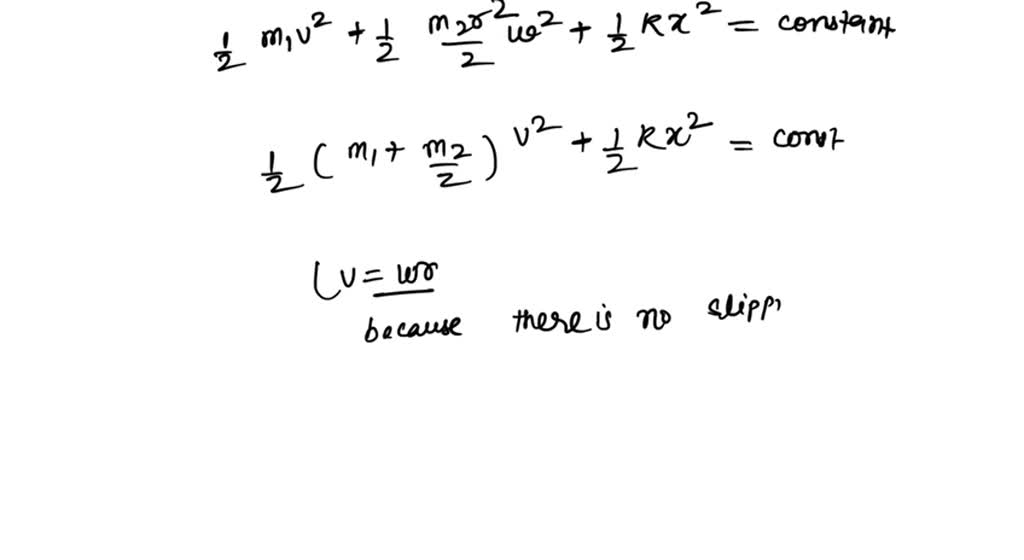 1/2 m₁v² + 1/2 m₂r²/2 ω² + 1/2 kx² = constant
1/2 (m₁ + m₂/2) v² + 1/2 kx² = const
(v = ωr
because there is no slipp